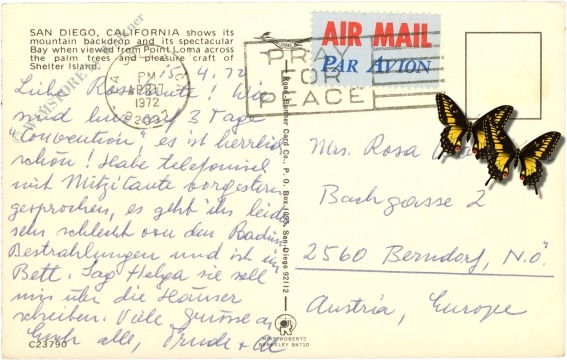 SAN DIEGO, CALIFORNIA shows its
mountain backdrop and its spectacular
Bay when viewed from Point Loma across
the palm trees and pleasure craft of
Shelter Island.
PM
1972
AIR MAIL
PAR AVION
PRAY
FOR
PEACE
4. 72
Liebe Rosa Tante! Wir
sind hier auf 3 Tage
"Convention", es ist herrlich
schön! Habe telefonisch
mit Mitzitante vorgestern
gesprochen, es geht ihr leider
sehr schlecht von den Radium
Bestrahlungen und ist im
Bett. Sag Helga sie soll
mir über die Häuser
schreiben. Viele Grüsse an
Euch alle, Trude +
C23790
Road Runner Card Co., P. O. Box San Diego 92112
MIKE ROBERTS
BERKELEY 94710
Mrs. Rosa
Bachgasse 2
2560 Berndorf, N.Ö.
Austria, Europe